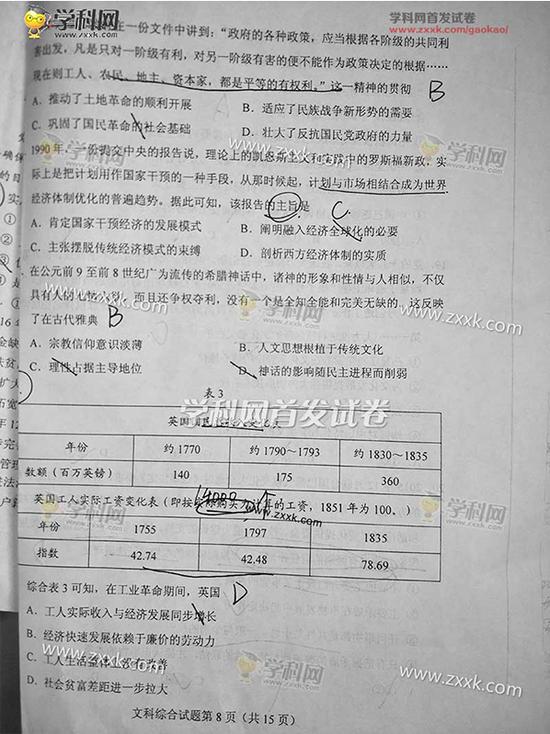 学科网
学科网首发试卷
www.zxxk.com/gaokao/
在一份文件中讲到:“政府的各种政策,应当根据各阶级的共同利
害出发,凡是只对一阶级有利,对另一阶级有害的便不能作为政策决定的根据……
现在则工人、农民、地主、资本家,都是平等的有权利。”这一精神的贯彻 B
A.推动了土地革命的顺利开展 B.适应了民族战争新形势的需要
C.巩固了国民革命的社会基础 D.壮大了反抗国民党政府的力量
1990年,一份提交中央的报告说,理论上的凯恩斯主义和实践中的罗斯福新政,实
际上是把计划用作国家干预的一种手段,从那时候起,计划与市场相结合成为世界
经济体制优化的普遍趋势。据此可知,该报告的主旨是 C
A.肯定国家干预经济的发展模式 B.阐明融入经济全球化的必要
C.主张摆脱传统经济模式的束缚 D.剖析西方经济体制的实质
在公元前9至前8世纪广为流传的希腊神话中,诸神的形象和性情与人相似,不仅
具有人的七情六欲,而且还争权夺利,没有一个是全知全能和完美无缺的。这反映
了在古代雅典 B
A.宗教信仰意识淡薄 B.人文思想根植于传统文化
C.理性占据主导地位 D.神话的影响随民主进程而削弱
学科网首发试卷
www.zxxk.com
表3
年份 约1770 约1790~1793 约1830~1835
数额(百万英镑) 140 175 360
英国工人实际工资变化表(即按实际购买力计算的工资,1851年为100。)
年份 1755 1797 1835
指数 42.74 42.48 78.69
综合表3可知,在工业革命期间,英国 D
A.工人实际收入与经济发展同步增长
B.经济快速发展依赖于廉价的劳动力
C.工人生活整体上没有改善
D.社会贫富差距进一步拉大
文科综合试题第8页(共15页)